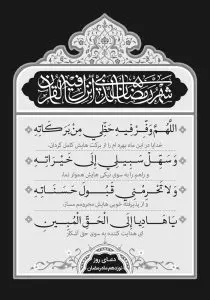 شهر رمضان الذي أنزل فيه القرآن
اَللّهُمَّ وَفِّرْ فيهِ حَظّي مِنْ بَرَكاتِهِ
خدایا در این ماه بهره ام را از برکت هایش کامل گردان،
وَ سَهِّلْ سَبيلي إلى خَيْراتِهِ
و راهم را به سوی نیکی هایش هموار نما،
وَ لا تَحْرِمْني قَبُولَ حَسَناتِهِ
و از پذیرفته خوبی هایش محرومم مساز،
يا هادِياً إلَى الْحَقِّ الْمُبينِ
ای هدایت کننده به سوی حق آشکار
دعای روز
نوزدهم ماه رمضان